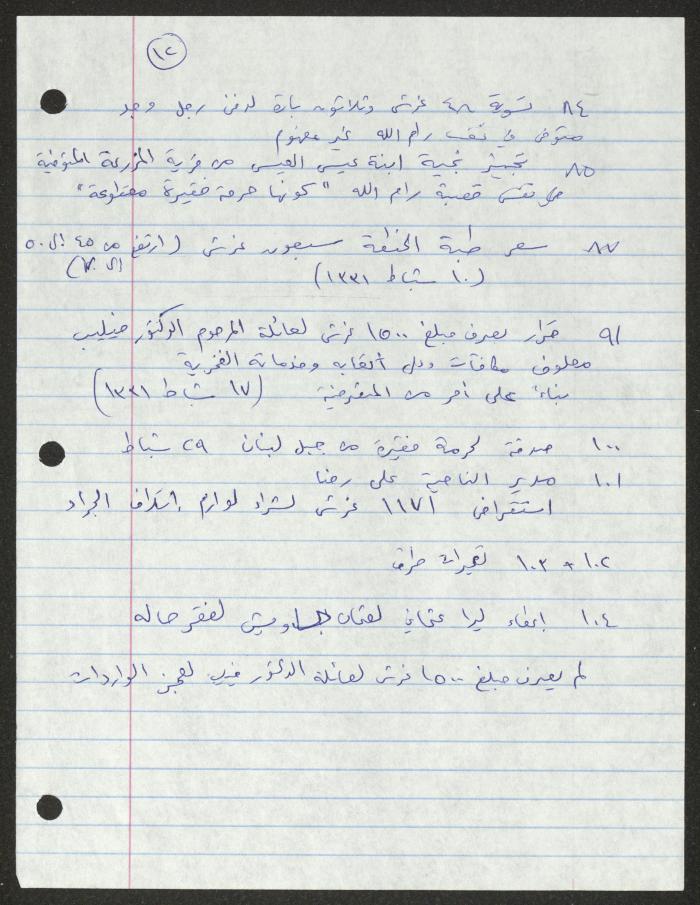 ١٢
٨٤ تسوية ٤٨ غرش وثلاثون بارة لدفن رجل وجد
متوفى في نفس رام الله غير مفهوم
٨٥ تجهيز نجية ابنة عيسى العيسى من قرية المزرعة المتوفية
في نفس قصبة رام الله "كونها حرمة فقيرة مقطوعة"
٨٧ سعر طبة الحنطة سبعون غرش (ارتفع من ٤٥ الى ٥٠
الى ٧٠)
(١٠ شباط ١٣٣١)
٩١ قرار بصرف مبلغ ١٥٠٠ غرش لعائلة المرحوم الدكتور فيليب
معلوف مكافات وبدل أتعابه وخدماته الفخرية
بناءً على أمر من المتصرفية (١٧ شباط ١٣٣١)
١٠٠ صدقة لحرمة فقيرة من جبل لبنان ٢٩ شباط
١٠١ مدير الناحية علي رضا
استقراض ١١٧١ غرش لشراء لوازم إتلاف الجراد
١٠٢ + ١٠٣ تعميرات طرق
١٠٤ إعفاء ليرا عثماني لعثمان لفقر حاله
لم يصرف مبلغ ١٥٠٠ غرش لعائلة الدكتور فيليب لعجز الواردات